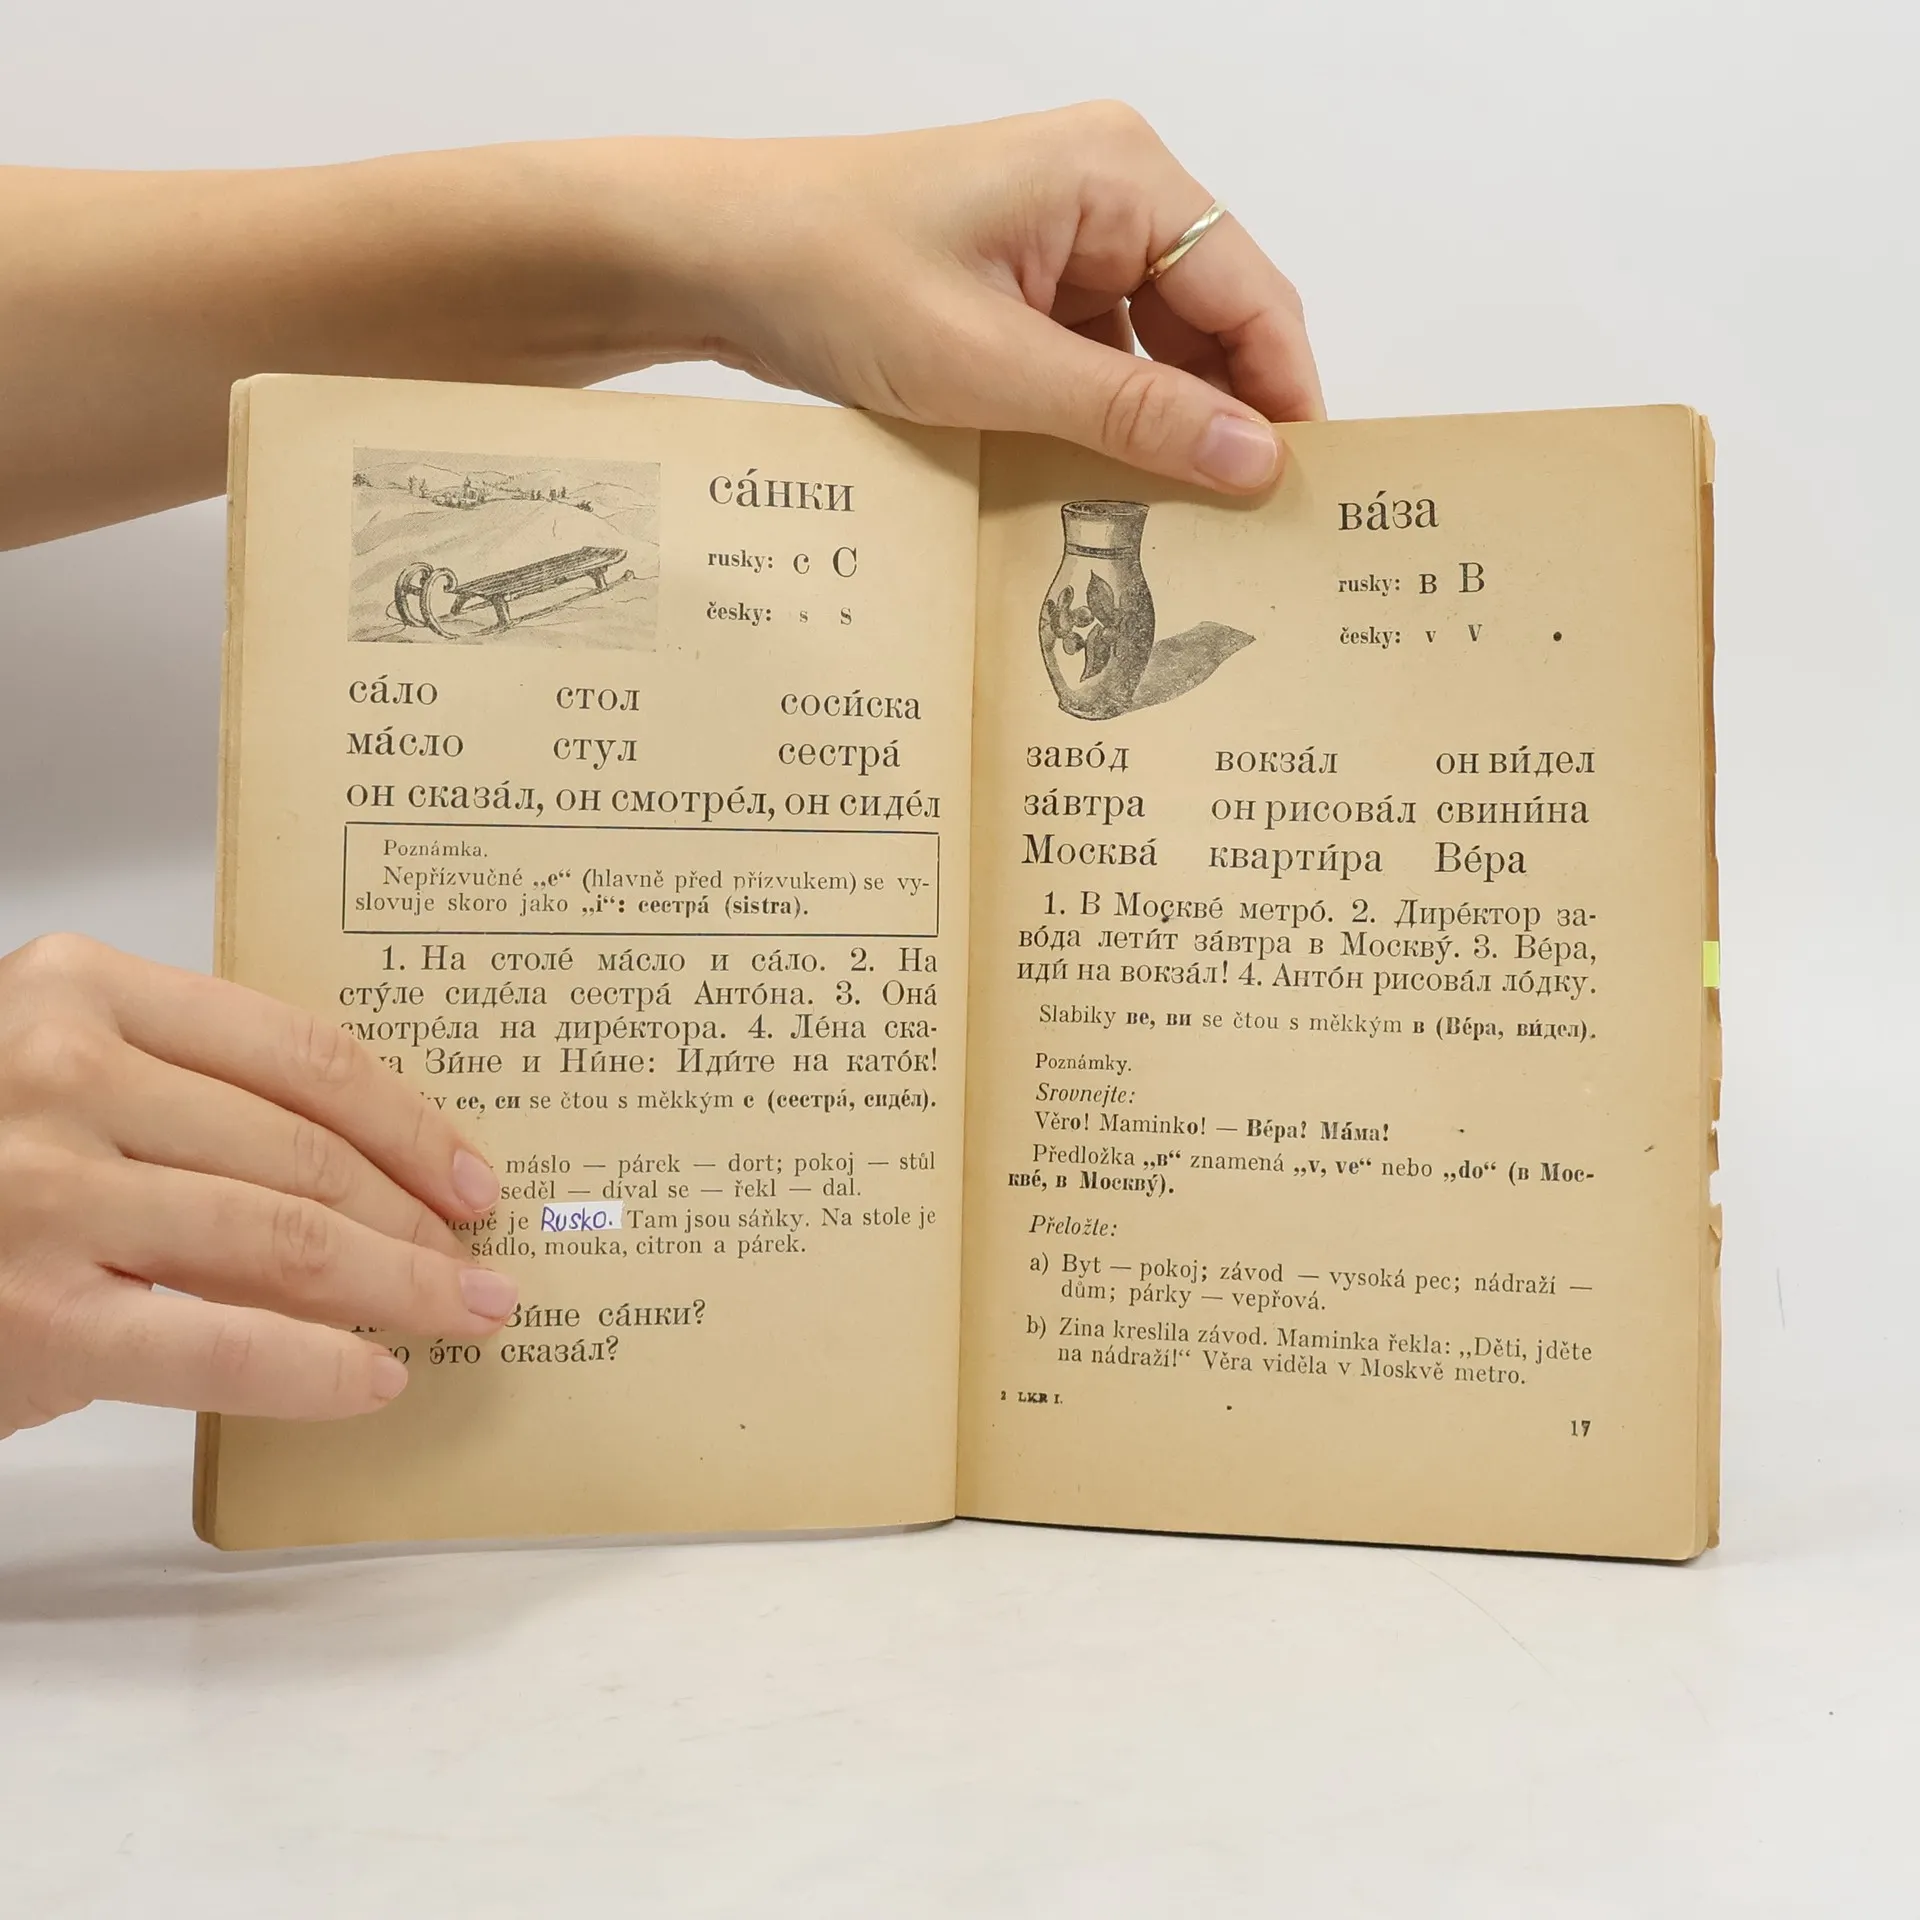 са́нки
rusky: с С
česky: s S
са́ло стол соси́ска
ма́сло стул сестра́
он сказа́л, он смотре́л, он сиде́л
Poznámka.
Nepřízvučné „e“ (hlavně před přízvukem) se vy-
slovuje skoro jako „i“: сестра́ (sistra).
1. На столе́ ма́сло и са́ло. 2. На
сту́ле сиде́ла сестра́ Анто́на. 3. Она́
смотре́ла на дире́ктора. 4. Ле́на ска-
Зи́не и Ни́не: Иди́те на като́к!
се, си se čtou s měkkým с (сестра́, сиде́л).
— máslo — párek — dort; pokoj — stůl
seděl — díval se — řekl — dal.
je Rusko. Tam jsou sáňky. Na stole je
sádlo, mouka, citron a párek.
Зи́не са́нки?
э́то сказа́л?
ва́за
rusky: в В
česky: v V
заво́д вокза́л он ви́дел
за́втра он рисова́л свини́на
Москва́ кварти́ра Ве́ра
1. В Москве́ метро́. 2. Дире́ктор за-
во́да лети́т за́втра в Москву́. 3. Ве́ра,
иди́ на вокза́л! 4. Анто́н рисова́л ло́дку.
Slabiky ве, ви se čtou s měkkým в (Ве́ра, ви́дел).
Poznámky.
Srovnejte:
Věro! Maminko! — Ве́ра! Ма́ма!
Předložka „в“ znamená „v, ve“ nebo „do“ (в Мос-
кве́, в Москву́).
Přeložte:
a) Byt — pokoj; závod — vysoká pec; nádraží —
dům; párky — vepřová.
b) Zina kreslila závod. Maminka řekla: „Děti, jděte
na nádraží!“ Věra viděla v Moskvě metro.
2 LKR I.
17